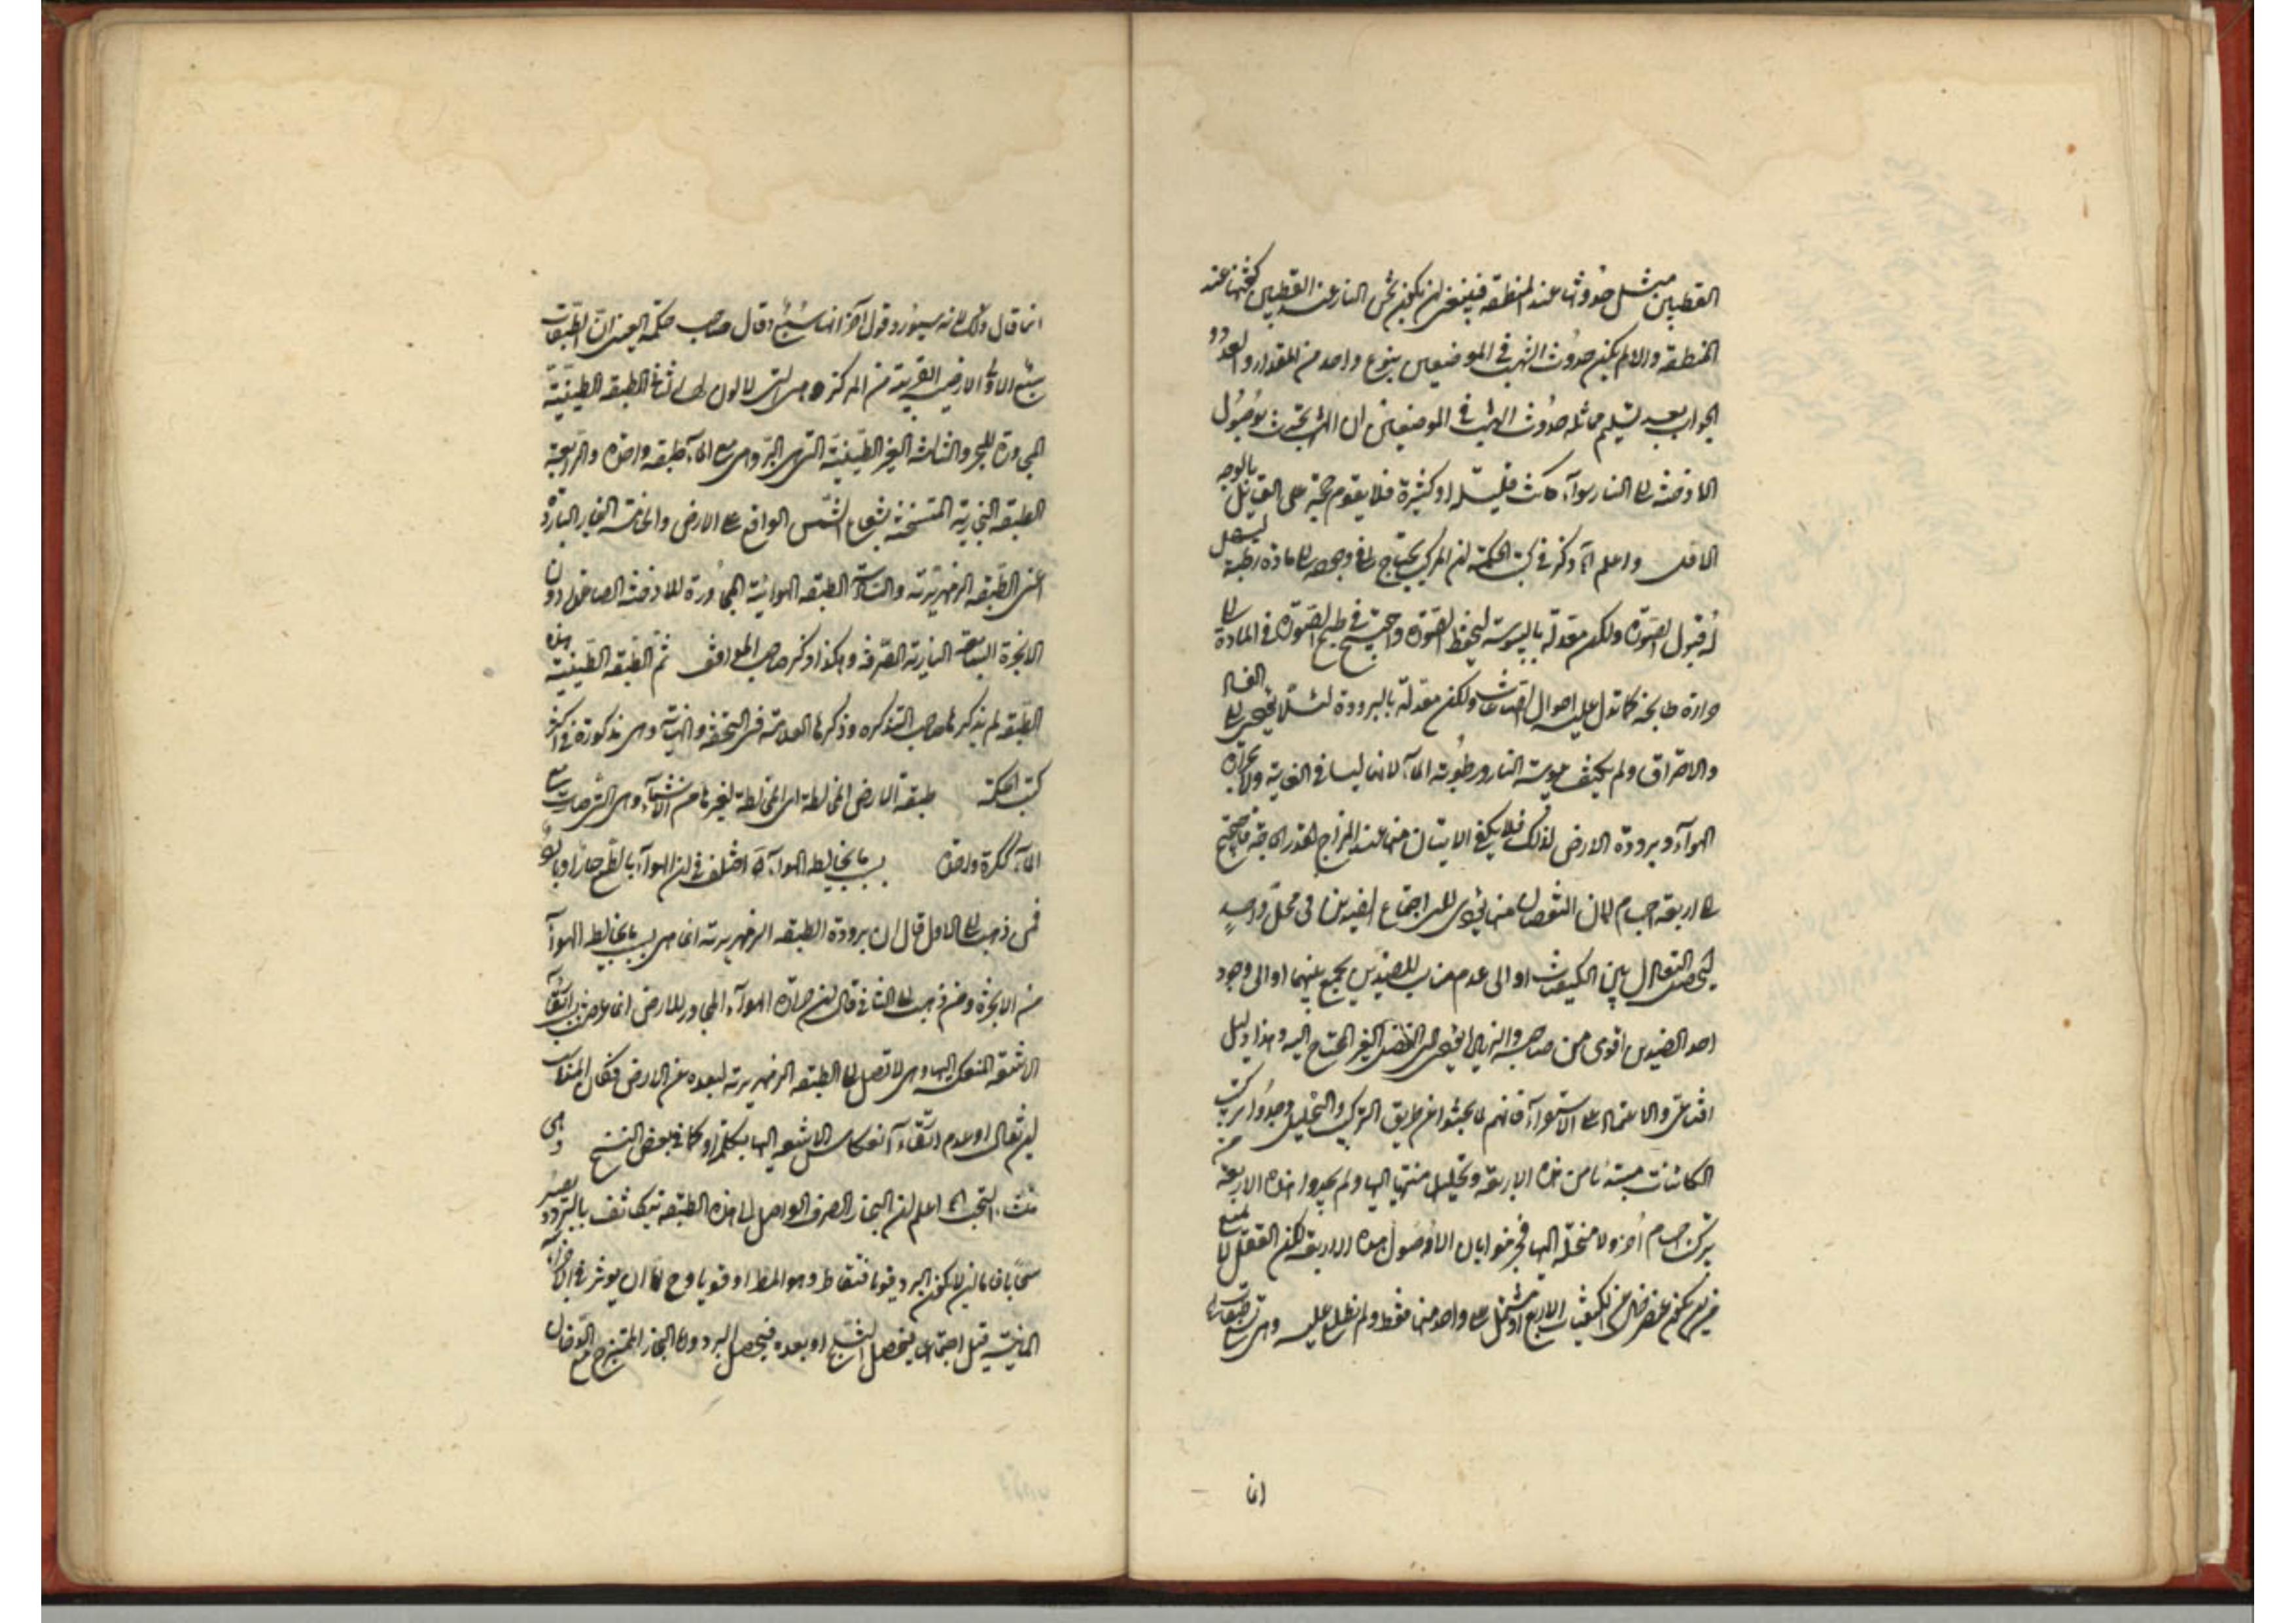 القطبين مثل حدوثها عند المنطقة فينبغي ان يكون ثخن النار عند القطبين كثخنها عند
المنطقة والا لم يكن حدوث الشهب في الموضعين بنوع واحد من المقدار والعدد و
الجواب بعد تسليم مماثلة حدوث الشهب في الموضعين ان الشهب تحدث بوصول
الادخنة الى النار سواء كانت قليلة او كثيرة فلا يقوم حجة على القايل بالوجه
الاول واعلم انه ذكر في كتب الحكمة ان المركب يحتاج في وجوده الى مادة رطبة ليسهل
له قبول الصورة ولكن معدلة باليبوسة ليحفظ الصورة واحتيج في طبخ الصورة في المادة الى
حرارة طابخة كما تدل عليه احوال الصناعات ولكن معدلة بالبرودة لئلا يفضى الى الفساد
والاحتراق ولم يكف يبوسة النار ورطوبة الماء لانهما ليسا في الغاية ولا حرارة
الهواء وبرودة الارض لذلك فلا يكفى الاثنان منها عند المزاج القدر الحاجة فاحتيج
الى اربعة اجسام لان النقصان عنها يؤدى الى اجتماع الضدين في محل واحد
ليحصل التعادل بين الكيفيات او الى عدم مناسب للضدين يجمع بينهما او الى وجود
احد الضدين اقوى من صاحبه والزيادة يفضى الى الفضل الغير المحتاج اليه وهذا دليل
اقناعى والاعتماد على الاستقراء فانهم لما بحثوا عن طريق التركيب والتحليل وجدوا تركيب
الكائنات مبتدئا من هذه الاربعة وتحليلها منتهيا اليها ولم يجدوا هذه الاربعة من
تركب اجسام اخر ولا منحلة اليها فجزموا بان الاصول هذه الاربعة لكن العقل لا يمنع
من ان يكون عنصر خال عن الكيفيات الاربع او مشتمل على واحد منها فقط ولم نطلع عليه وهى تسع طبقات
انما
انما قال ذلك لانه سيورد قول آخر انها سبع وقال صاحب حكمة العين ان الطبقات
سبع الاولى الارضية القريبة من المركز وهى التى لا لون لها الثانية الطبقة الطينية
المجاورة للبحر والثالثة الغير الطينية التى هى البر وهى مع الماء طبقة واحدة والرابعة
الطبقة البخارية المتسخنة بشعاع الشمس الواقع على الارض والخامسة البخارية الباردة
اعنى الطبقة الزمهريرية والسادسة الطبقة الهوائية المجاورة للادخنة الصاعدة دون
الابخرة السابعة النارية الصرفة وهكذا ذكر صاحب المواقف ثم الطبقة الطينية هذه
الطبقة لم يذكرها صاحب التذكرة وذكرها العلامة في التحفة والنهاية وهى مذكورة في اكثر
كتب الحكمة طبقة الارض المخالطة اى المخالطة لغيرها من الاشياء وهى التى صارت مع
الماء ككرة واحدة بسبب ما يخالطه الهواء قد اختلف في ان الهواء بالطبع حار او بارد
فمن ذهب الى الاول قال ان برودة الطبقة الزمهريرية انما هى بسبب ما يخالط الهواء
من الابخرة ومن ذهب الى الثانى قال ان حرارة الهواء المجاور للارض انما عرضت بسبب ارتقاء
الاشعة المنعكسة اليها وهى لا تصل الى الطبقة الزمهريرية لبعده عن الارض فكان المناسب
ان يقال او عدم ارتقاء انعكاس الاشعة اليها بكلمة او كما في بعض النسخ وهى
منشاء السحب اعلم ان البخار الصرف الواصل الى هذه الطبقة يتكاثف بالبرد ويصير
سحابا فاما ان لا يكون البرد قويا فتقاطر وهو المطر او قويا وح اما ان يؤثر في الاجزاء
المائية قبل اجتماعها فيحصل الثلج او بعده فيحصل البرد واما البخار الممتزج مع الدخان